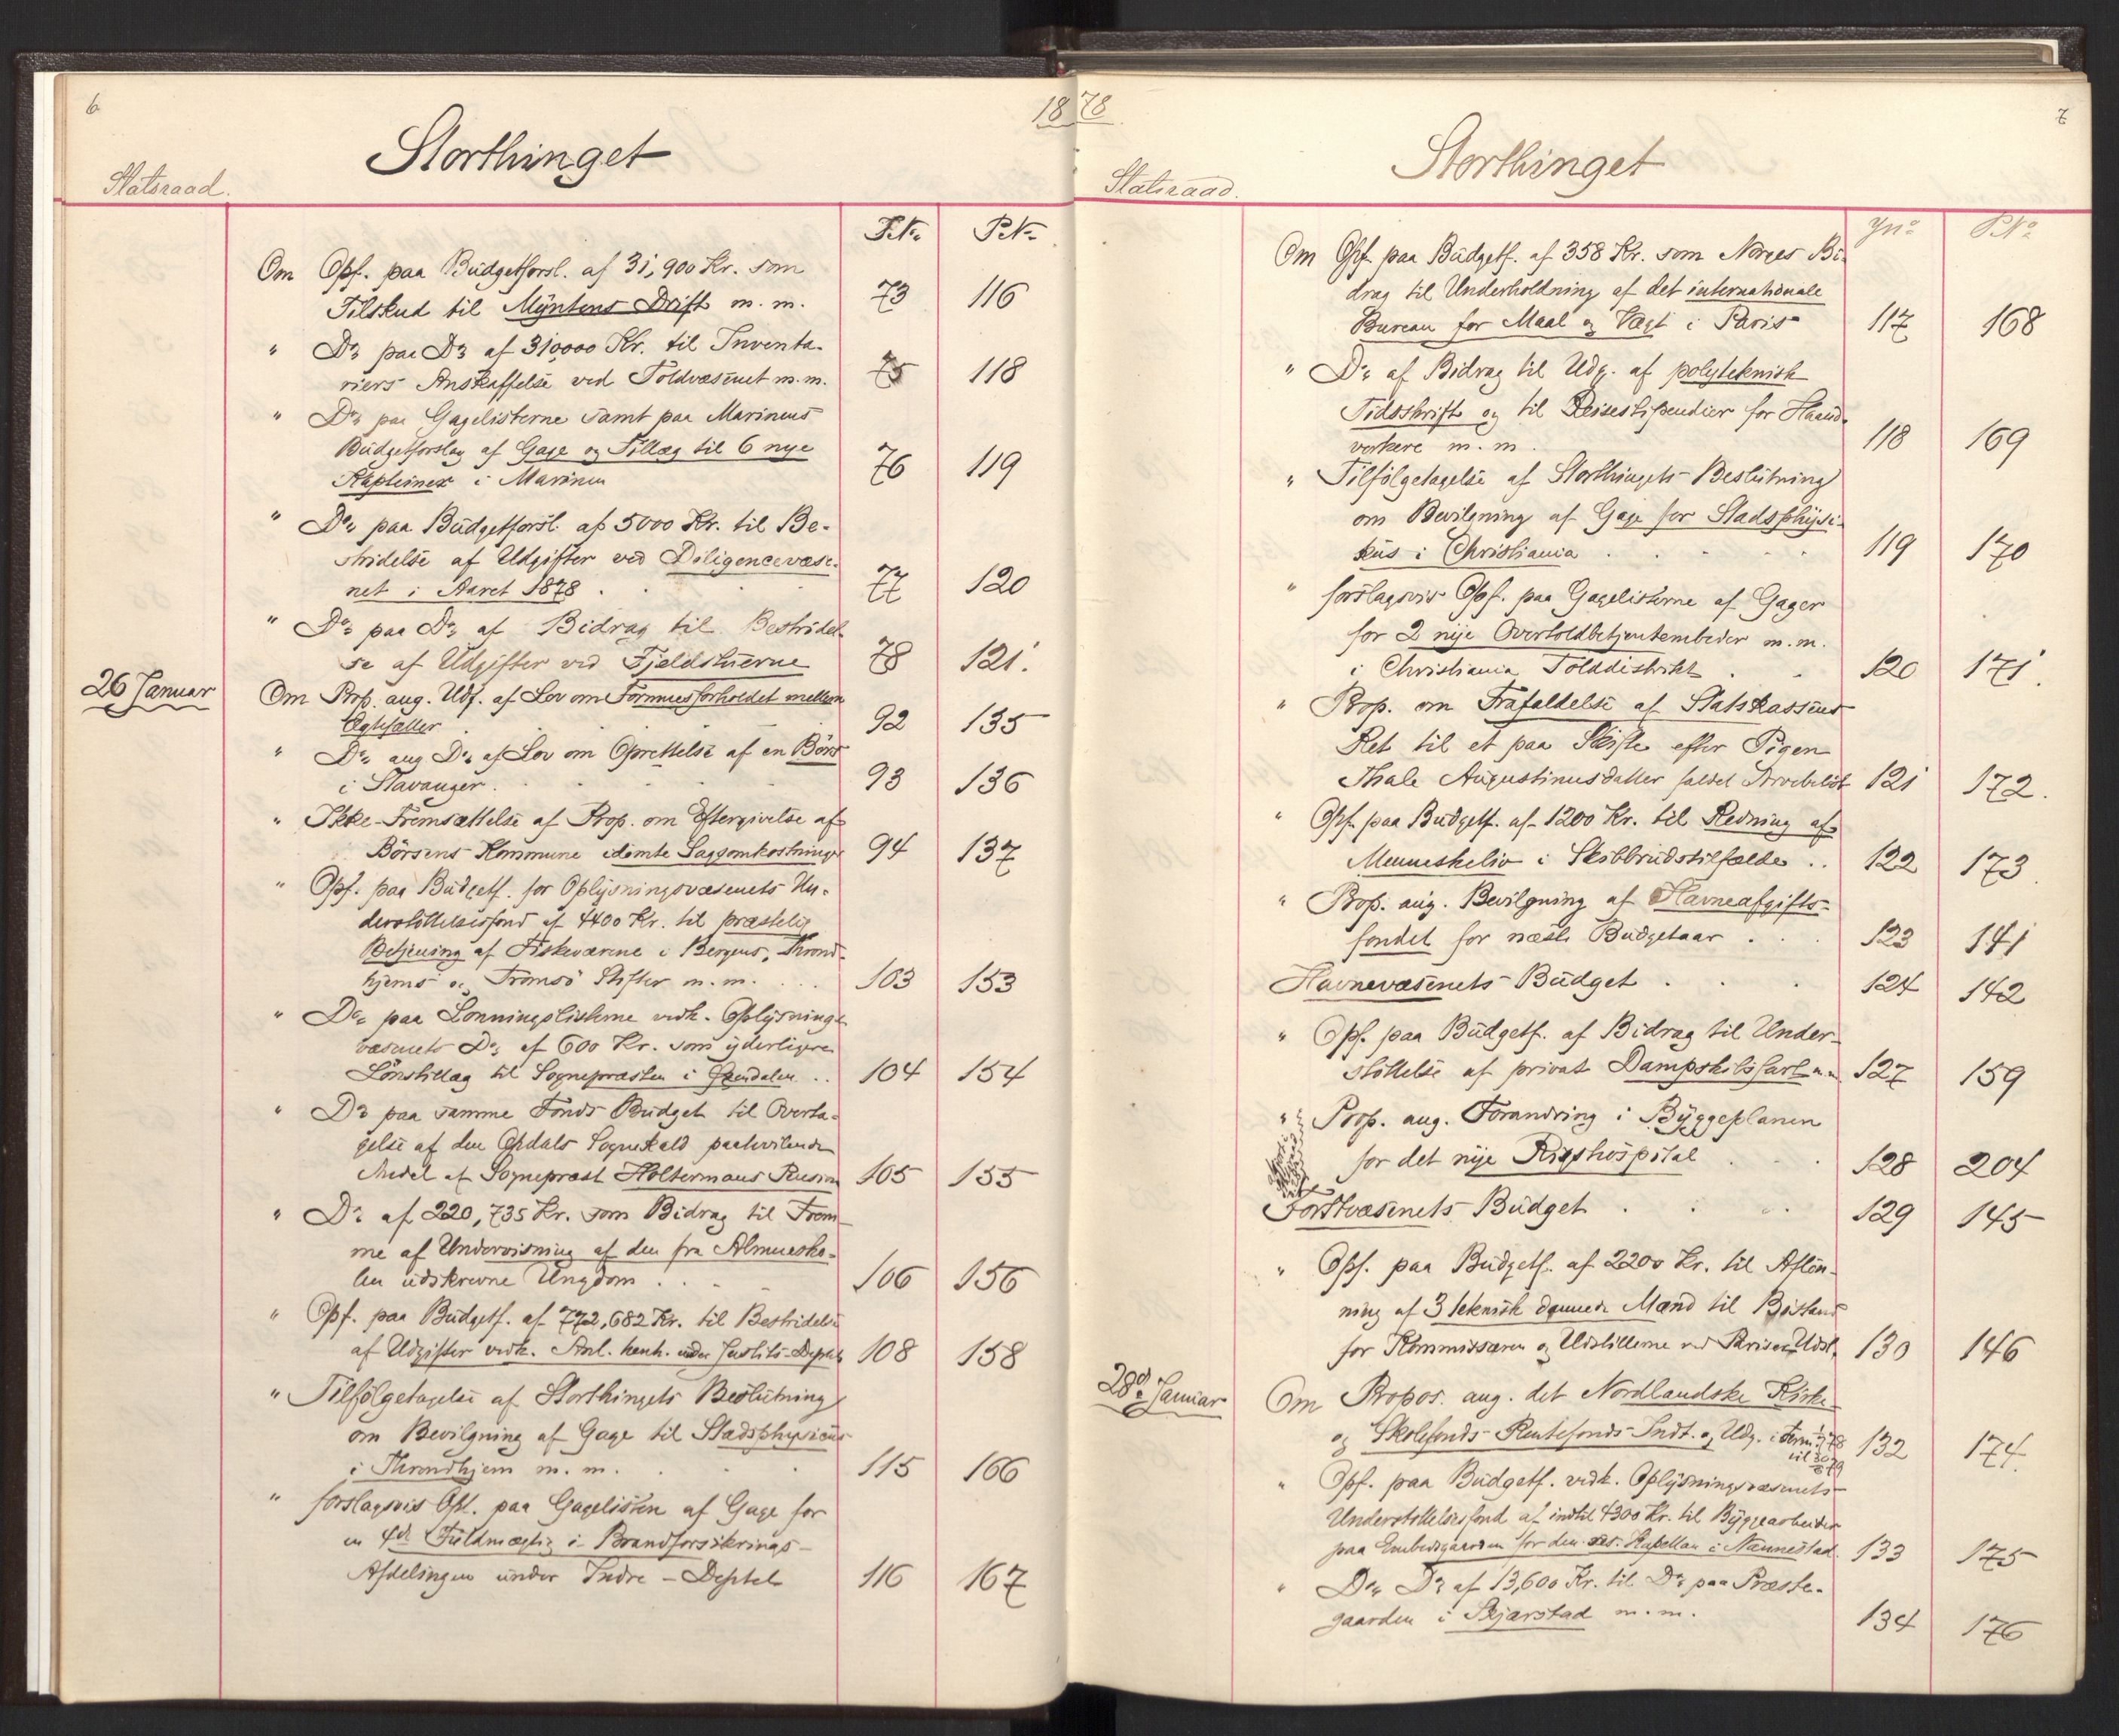 6
1878
Storthinget
Statsraad.
J.No P.No
Om Opf. paa Büdgetforsl. af 31,900 Kr. som
Tilskud til Myntens Drift m. m. 73 116
" Do paa Do af 310,000 Kr. til Inventa-
riers Anskaffelse ved Toldvæsenet m. m. 75 118
" Do paa Gagelisterne samt paa Marinens
Büdgetforslag af Gage og Tillæg til 6 nye
Kapteiner i Marinen 76 119
" Do paa Büdgetforsl. af 5000 Kr. til Be-
stridelse af Udgifter ved Diligencevæse-
net i Aaret 1878 . 77 120
" Do paa Do af Bidrag til Bestridel-
se af Udgifter ved Fjeldstuerne 78 121.
26 Januar
Om Prop. ang. Udf. af Lov om Formuesforholdet mellem
Ægtefæller . . . 92 135
" Do ang Do af Lov om Oprettelse af en Börs
i Stavanger. . . . 93 136
" Ikke-Fremsættelse af Prop. om Eftergivelse af
Börsens Kommune idömte Sagsomkostninger 94 137
" Opf. paa Büdgetf. for Oplysningsvæsenets Un-
derstöttelsesfond af 4400 Kr. til præstelig
Betjening af Fiskeværene i Bergens, Thrond-
hjems og Tromsö Stifter m. m. . . . 103 153
" Do paa Lönningslisterne vedk. Oplysnings-
væsenets Do af 600 Kr. som yderligere
Lönstillæg til Sognepræsten i . . 104 154
" Do paa samme Fonds Budget til Overta-
gelse af den Opdals Sognekald paahvilende
Andel af Sognepræst Holtermans Pension 105 155
" Do af 220,735 Kr. som Bidrag til Frem-
me af Undervisning af den fra Almuesko-
len üdskrevne Ungdom . . . 106 156
" Opf. paa Büdgetf. af 772,682 Kr. til Bestridelse
af Udgifter vedk. Anl. henh. under Justits-Deptet 108 158
" Tilfölgetagelse af Storthingets Beslütning
om Bevilgning af Gage til Stadsphysicus
i Throndhjem m. m. . . 115 166
" forslagsvis Opf. paa Gagelisten af Gage for
en 4de Füldmægtig i Brandforsikrings-
Afdelingen ünder Indre-Deptet 116 167
7
Storthinget
Statsraad.
Jno PNo
Om Opf. paa Büdgetf. af 358 Kr. som Norges Bi-
drag til Underholdning af det internationale
Bureau for Maal og Vægt i Paris 117 168
" Do af Bidrag til Udg. af polyteknisk
Tidsskrift og til Reisestipendier for Haand-
værkere m. m. 118 169
" Tilfölgetagelse af Storthingets Beslütning
om Bevilgning af Gage for Stadsphysi-
küs i Christiania . . . . 119 170
" forslagsvis Opf. paa Gagelisterne af Gager
for 2 nye Overtoldbetjentembeder m. m.
i Christiania Tolddistrikt . . 120 171.
" Prop. om Frafaldelse af Statskassens
Ret til et paa Skifte efter Pigen
Thale Augustinusdatter faldet Arvebelöb 121 172.
" Opf. paa Büdgetf. af 1200 Kr. til Redning af
Menneskeliv i Skibbrüdstilfælde . . 122 173
" Prop. ang. Bevilgning af Havneafgifts-
fondet for næste Büdgetaar . . . 123 141
Havnevæsenets Büdget . . . 124 142
" Opf. paa Büdgetf. af Bidrag til Under-
stöttelse af privat Dampskibsfart m.m 127 159
" Prop. ang. Forandring i Byggeplanen
for det nye Rigshospital . . . 128 204
Forstvæsenets Büdget . . . 129 145
" Opf. paa Büdgetf. af 2200 Kr. til Aflön-
ning af 3 teknisk dannede Mænd til Bistand
for Kommissæren og Udstillerne ved Pariser Udst. 130 146
28de Januar
Om Propos. ang. det Nordlandske Kirke-
og Skolefonds Rentefonds Indt. og Udg. i Term. 78
til 79 132 174.
" Opf. paa Büdgetf. vedk. Oplysningsvæsenets
Understöttelsesfond af indtil 4300 Kr. til Byggearbeider
paa Embedsgaarden for den res. Kapellan i Nannestad. 133 175
" Do Do af 13,600 Kr. til Do paa Præste-
gaarden i Skjærstad m. m. 134 176